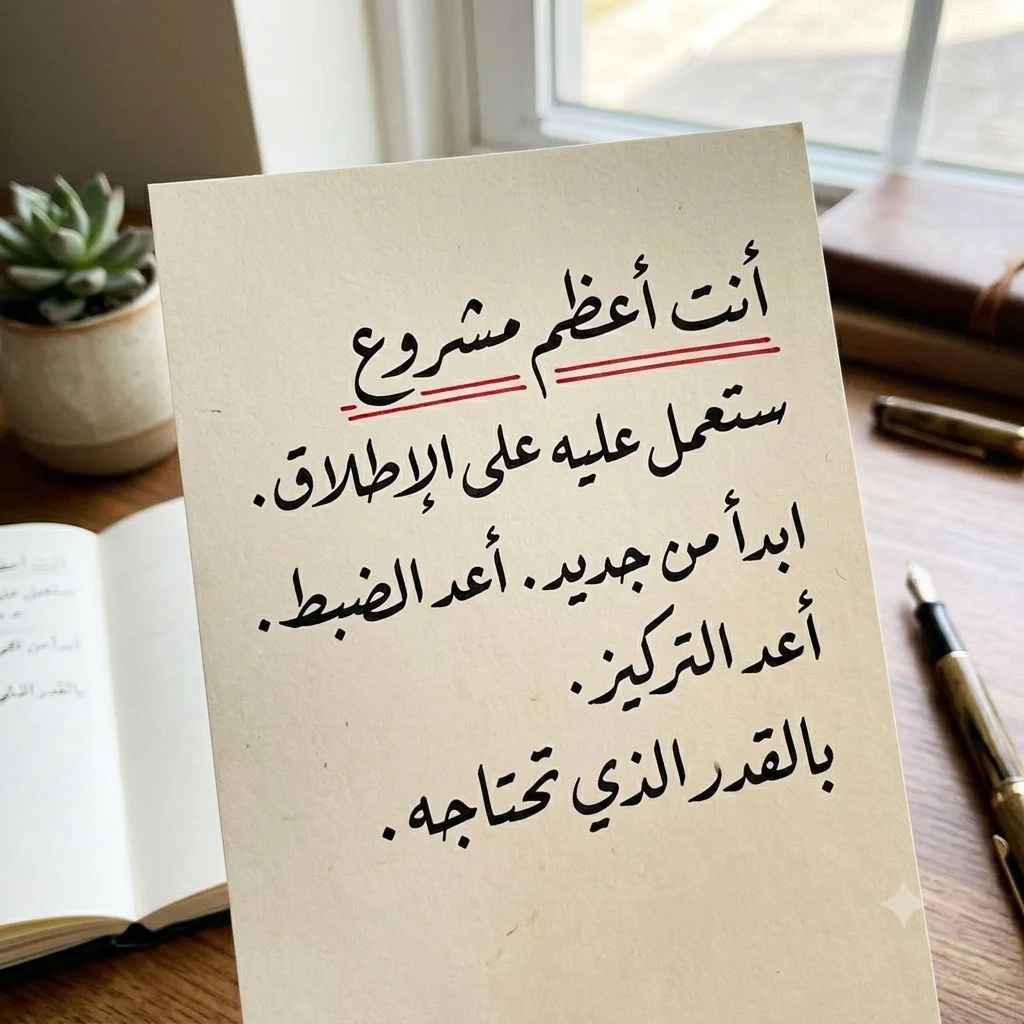 أنت أعظم مشروع
ستعمل عليه على الإطلاق.
ابدأ من جديد. أعد الضبط.
أعد التركيز.
بالقدر الذي تحتاجه.